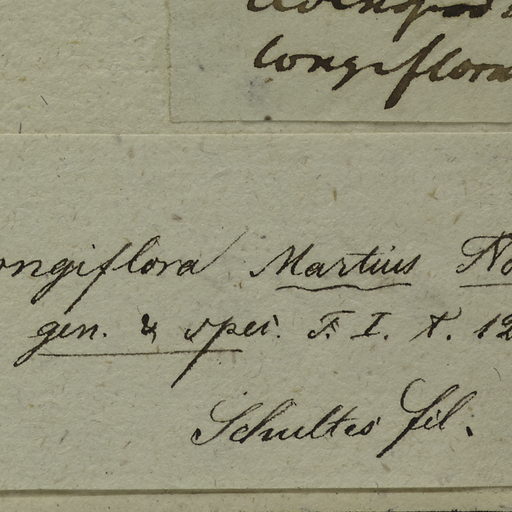 longiflora
ongiflora Martius No
gen. & spec. T. I. t. 12
Schultes fil.